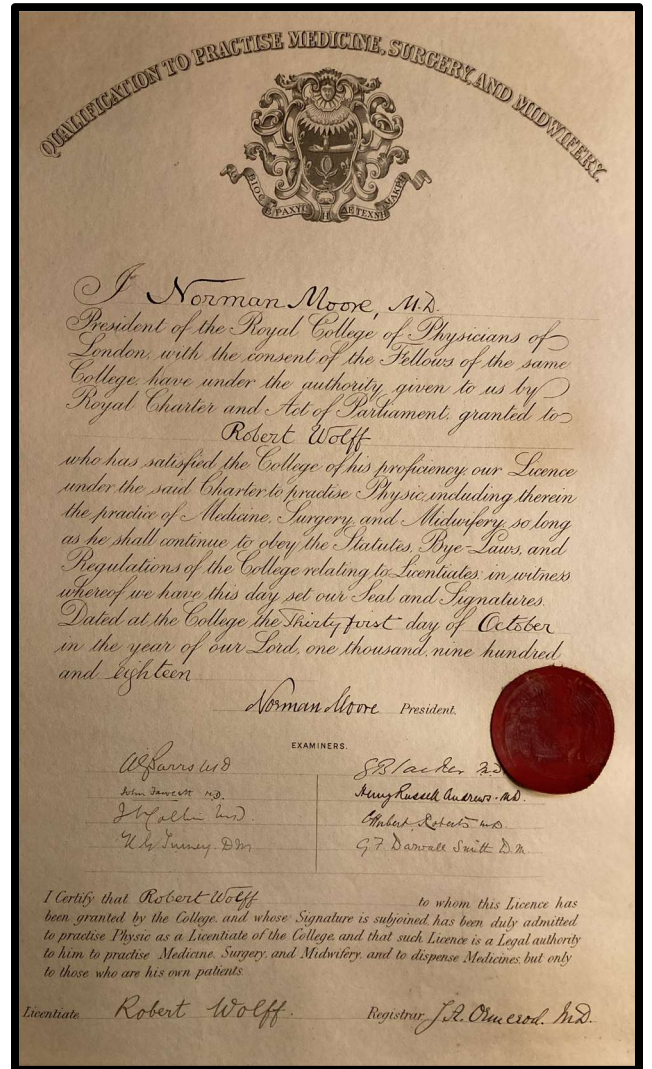 QUALIFICATION TO PRACTISE MEDICINE, SURGERY, AND MIDWIFERY.
I Norman Moore, M.D.
President of the Royal College of Physicians of
London, with the consent of the Fellows of the same
College, have under the authority given to us by
Royal Charter and Act of Parliament, granted to
Robert Wolff
who has satisfied the College of his proficiency, our Licence
under the said Charter to practise Physic, including therein
the practice of Medicine, Surgery, and Midwifery, so long
as he shall continue to obey the Statutes, Bye-Laws, and
Regulations of the College relating to Licentiates: in witness
whereof we have this day set our Seal and Signatures.
Dated at the College the Thirty first day of October
in the year of our Lord, one thousand, nine hundred
and eighteen
Norman Moore President.
EXAMINERS.
M.D.
John Fawcett M.D. Henry Russell Andrews. M.D.
M.D. C Hubert Roberts M.D.
Turney. D.M. G F Darwall Smith D.M.
I Certify that Robert Wolff to whom this Licence has
been granted by the College, and whose Signature is subjoined, has been duly admitted
to practise Physic as a Licentiate of the College, and that such Licence is a Legal authority
to him to practise Medicine, Surgery, and Midwifery, and to dispense Medicines, but only
to those who are his own patients.
Licentiate Robert Wolff. Registrar J.A. Ormerod. M.D.